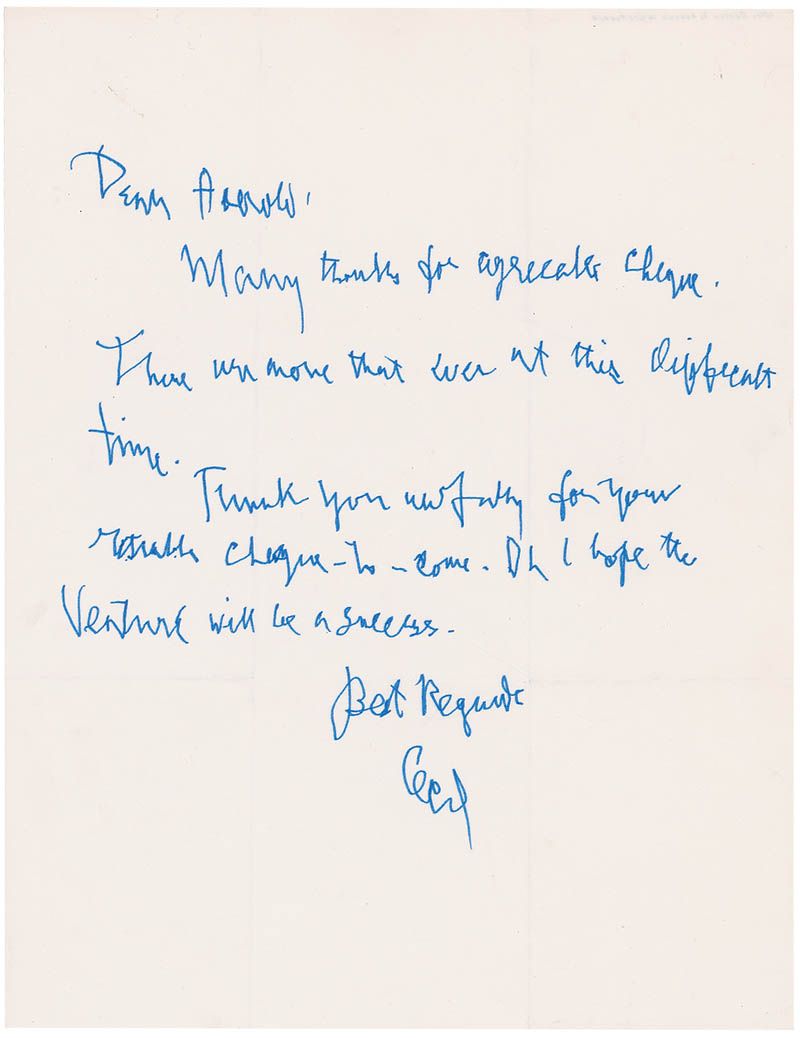 Dear Arnold,
Many thanks for agreeable cheque.
There more that ever at this difficult
time.
Thank you awfully for your
cheque-to-come. Oh I hope the
Venture will be a success.
Best Regards
Cecil